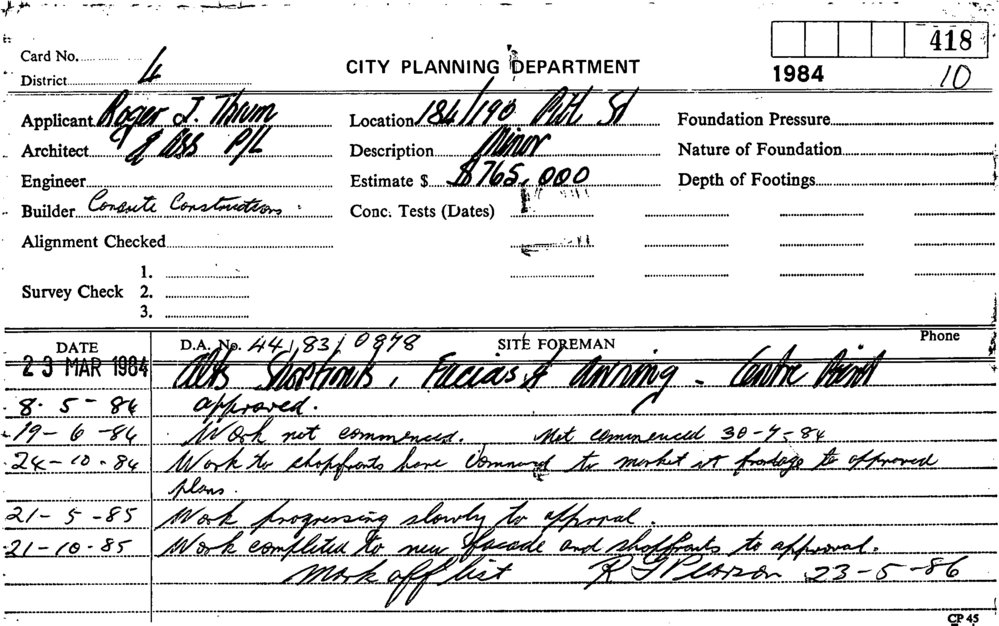 Card No.
District 4
CITY PLANNING DEPARTMENT
418
1984 10
Applicant Roger J. Thrum
Location 184/190 Pitt St
Foundation Pressure
Architect & Ass P/L
Description Minor
Nature of Foundation
Engineer
Estimate $ $765,000
Depth of Footings
Builder Consite Constructions
Conc. Tests (Dates)
Alignment Checked
Survey Check
1.
2.
3.
DATE
D.A. No. 44/83/0978
SITE FOREMAN
Phone
23 MAR 1984 Alts Shopfronts, Facias & Awning - Centre Point
8-5-84 approved.
19-6-84 Work not commenced. Not commenced 30-7-84
24-10-84 Work to shopfronts have commenced to market st frontage to approved
plans.
21-5-85 Work progressing slowly to approval.
21-10-85 Work completed to new facade and shopfronts to approval.
Mark off list R G Pearson 23-5-86
CP 45